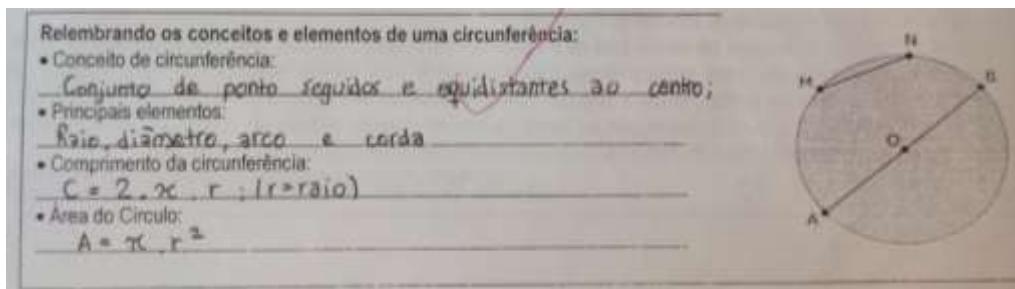 Relembrando os conceitos e elementos de uma circunferência:
• Conceito de circunferência:
Conjunto de ponto seguidos e equidistantes ao centro;
• Principais elementos:
Raio, diâmetro, arco e corda
• Comprimento da circunferência:
C = 2 . π . r ; (r=raio)
• Área do Círculo:
A = π . r²
N
M
B
O
A